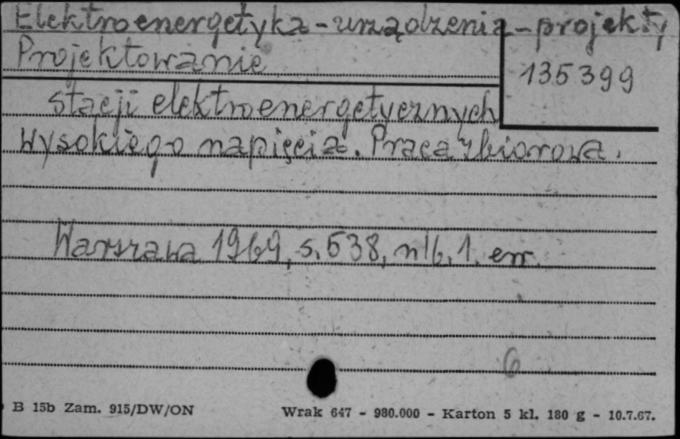 Elektroenergetyka - urządzenia - projekty
Projektowanie
135399
stacji elektroenergetycznych
wysokiego napięcia. Praca zbiorowa.
Warszawa 1969, s. 538, nlb. 1. err.
6
B 15b Zam. 915/DW/ON
Wrak 647 - 980.000 - Karton 5 kl. 180 g - 10.7.67.